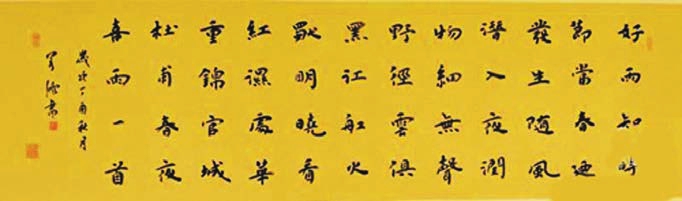 好雨知時
節當春迺
發生随風
潛入夜潤
物細無聲
野徑雲俱
黑江舡火
獨明曉看
紅濕處華
重錦官城
杜甫春夜
喜雨一首
歲次丁酉秋月